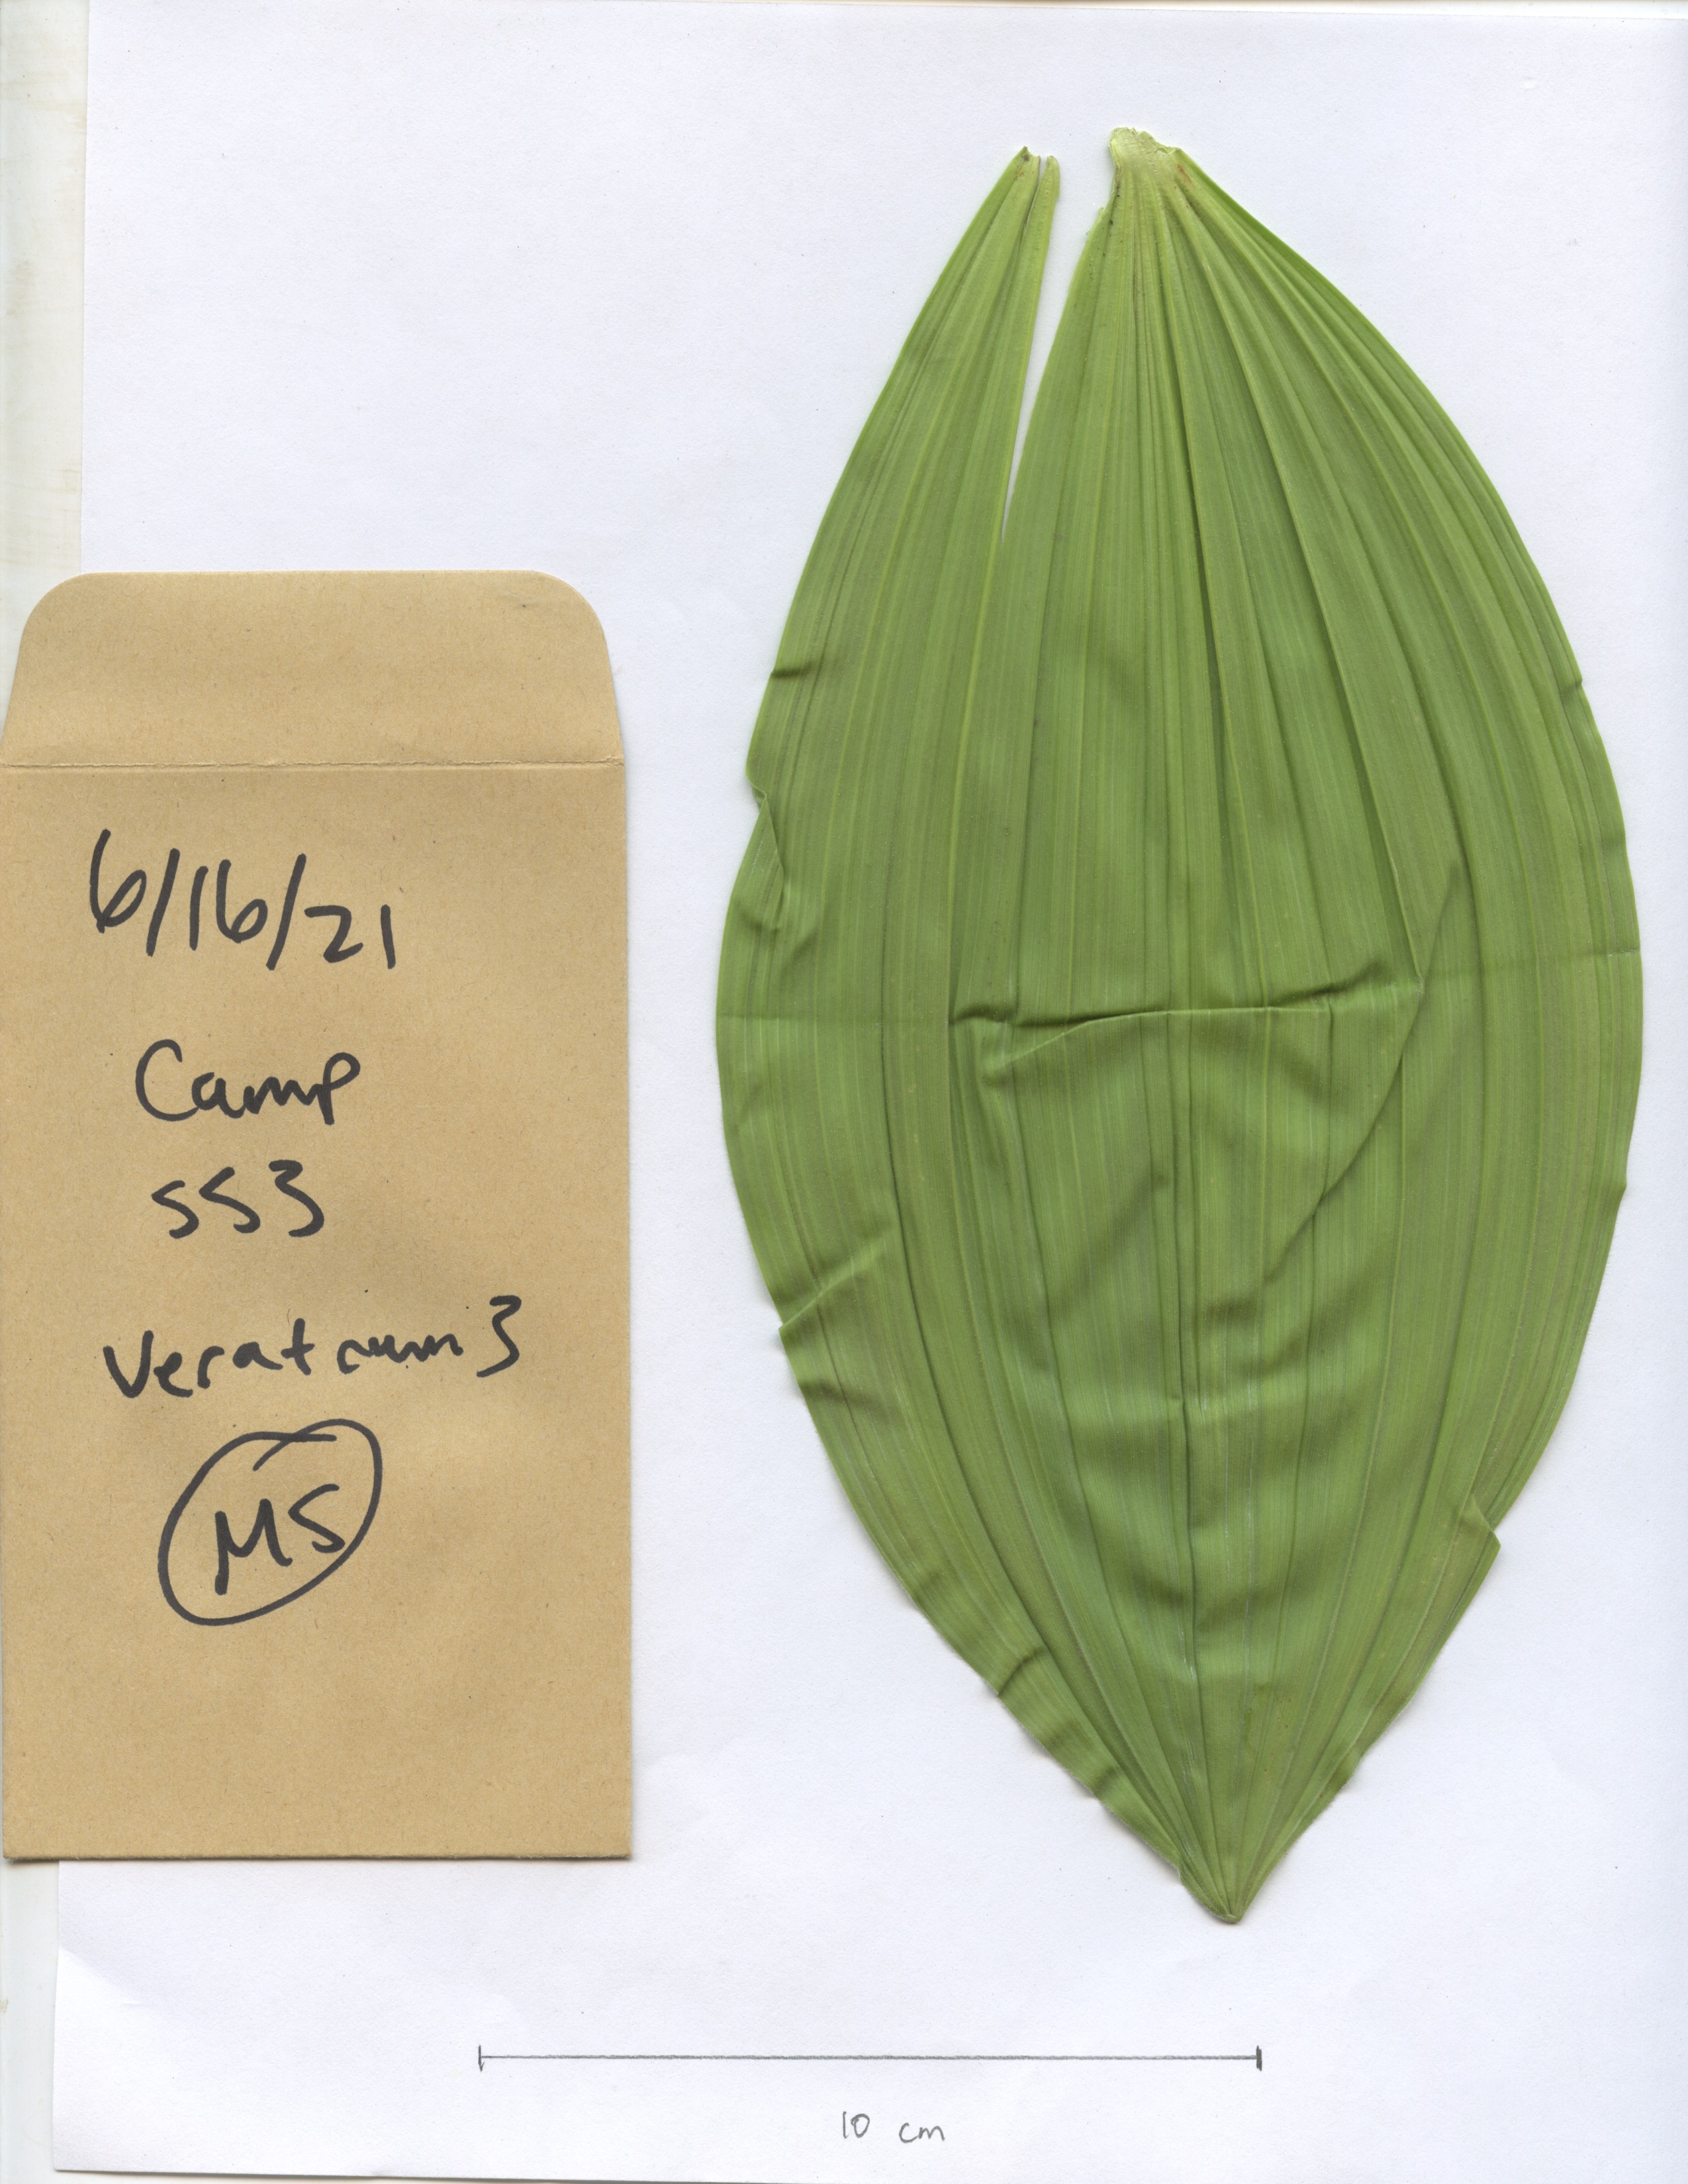 6/16/21
Camp
SS3
Veratrum 3
MS
10 cm